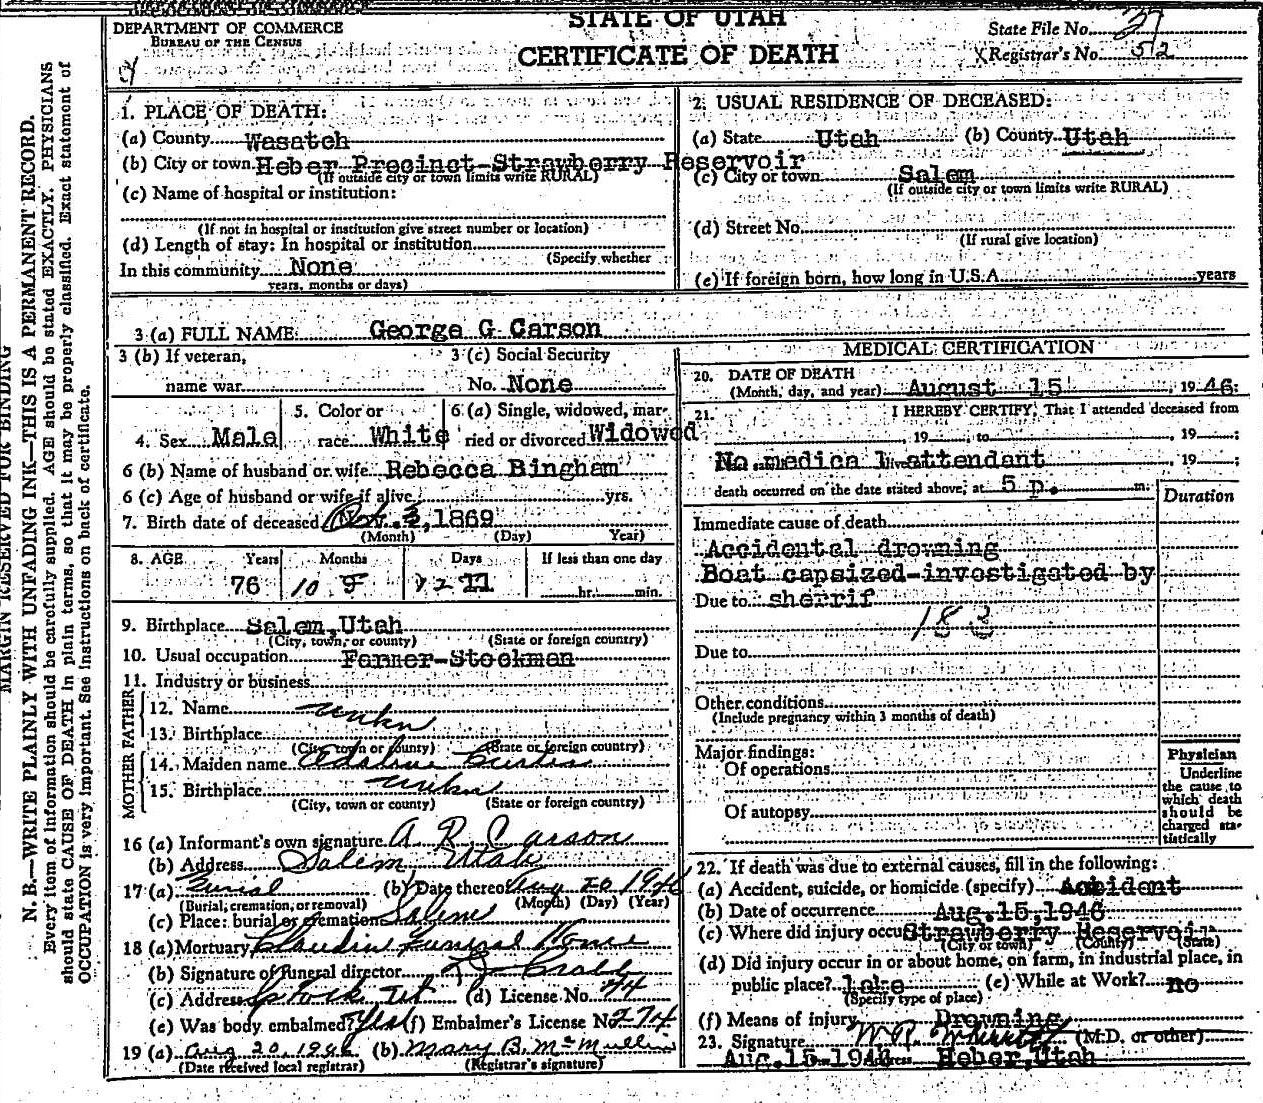 DEPARTMENT OF COMMERCE
BUREAU OF THE CENSUS
STATE OF UTAH
CERTIFICATE OF DEATH
State File No. 37
Registrar's No. 52
MARGIN RESERVED FOR BINDING
N. B.—WRITE PLAINLY WITH UNFADING INK—THIS IS A PERMANENT RECORD.
Every item of information should be carefully supplied. AGE should be stated EXACTLY. PHYSICIANS
should state CAUSE OF DEATH in plain terms, so that it may be properly classified. Exact statement of
OCCUPATION is very important. See instructions on back of certificate.
1. PLACE OF DEATH:
(a) County Wasatch
(b) City or town Heber Precinct-Strawberry Reservoir
(If outside city or town limits write RURAL)
(c) Name of hospital or institution:
(If not in hospital or institution give street number or location)
(d) Length of stay: In hospital or institution
(Specify whether
In this community None
years, months or days)
2. USUAL RESIDENCE OF DECEASED:
(a) State Utah (b) County Utah
(c) City or town Salem
(If outside city or town limits write RURAL)
(d) Street No.
(If rural give location)
(e) If foreign born, how long in U.S.A. years
3 (a) FULL NAME: George G Carson
3 (b) If veteran,
name war
3 (c) Social Security
No. None
4. Sex Male
5. Color or
race White
6 (a) Single, widowed, mar-
ried or divorced Widowed
6 (b) Name of husband or wife Rebecca Bingham
6 (c) Age of husband or wife if alive yrs.
7. Birth date of deceased Oct. 3, 1869
(Month) (Day) Year)
8. AGE Years Months Days If less than one day
76 10 9 12 11 hr. min.
9. Birthplace Salem, Utah
(City, town, or county) (State or foreign country)
10. Usual occupation Farmer-Stockman
11. Industry or business
FATHER
12. Name unkn
13. Birthplace
(City, town or county) (State or foreign country)
MOTHER
14. Maiden name Adaline Curtis
15. Birthplace unkn
(City, town or county) (State or foreign country)
16 (a) Informant's own signature A R Carson
(b) Address Salem Utah
17 (a) Burial (b) Date thereof Aug 20 1946
(Burial, cremation, or removal) (Month) (Day) (Year)
(c) Place: burial or cremation Salem
18 (a) Mortuary Claudin Funeral Home
(b) Signature of funeral director
(c) Address Sp Fork Ut (d) License No. 44
(e) Was body embalmed? Yes (f) Embalmer's License No. 274
19 (a) Aug 20, 1946 (b) Mary B. McMullin
(Date received local registrar) (Registrar's signature)
MEDICAL CERTIFICATION
20. DATE OF DEATH
(Month, day, and year) August 15, 1946:
21. I HEREBY CERTIFY, That I attended deceased from
, 19 , to , 19 ;
No medical attendant , 19 ;
death occurred on the date stated above, at 5 p. m.
Duration
Immediate cause of death
Accidental drowning
Boat capsized-investigated by
Due to sherrif
183
Due to
Other conditions
(Include pregnancy within 3 months of death)
Major findings:
Of operations
Of autopsy
Physician
Underline
the cause to
which death
should be
charged sta-
tistically
22. If death was due to external causes, fill in the following:
(a) Accident, suicide, or homicide (specify) Accident
(b) Date of occurrence Aug.15,1946
(c) Where did injury occur Strawberry Reservoir
(City or town) (County) (State)
(d) Did injury occur in or about home, on farm, in industrial place, in
public place? Lake (e) While at Work? no
(Specify type of place)
(f) Means of injury Drowning
23. Signature (M.D. or other)
Aug.15-1946 Address Heber, Utah